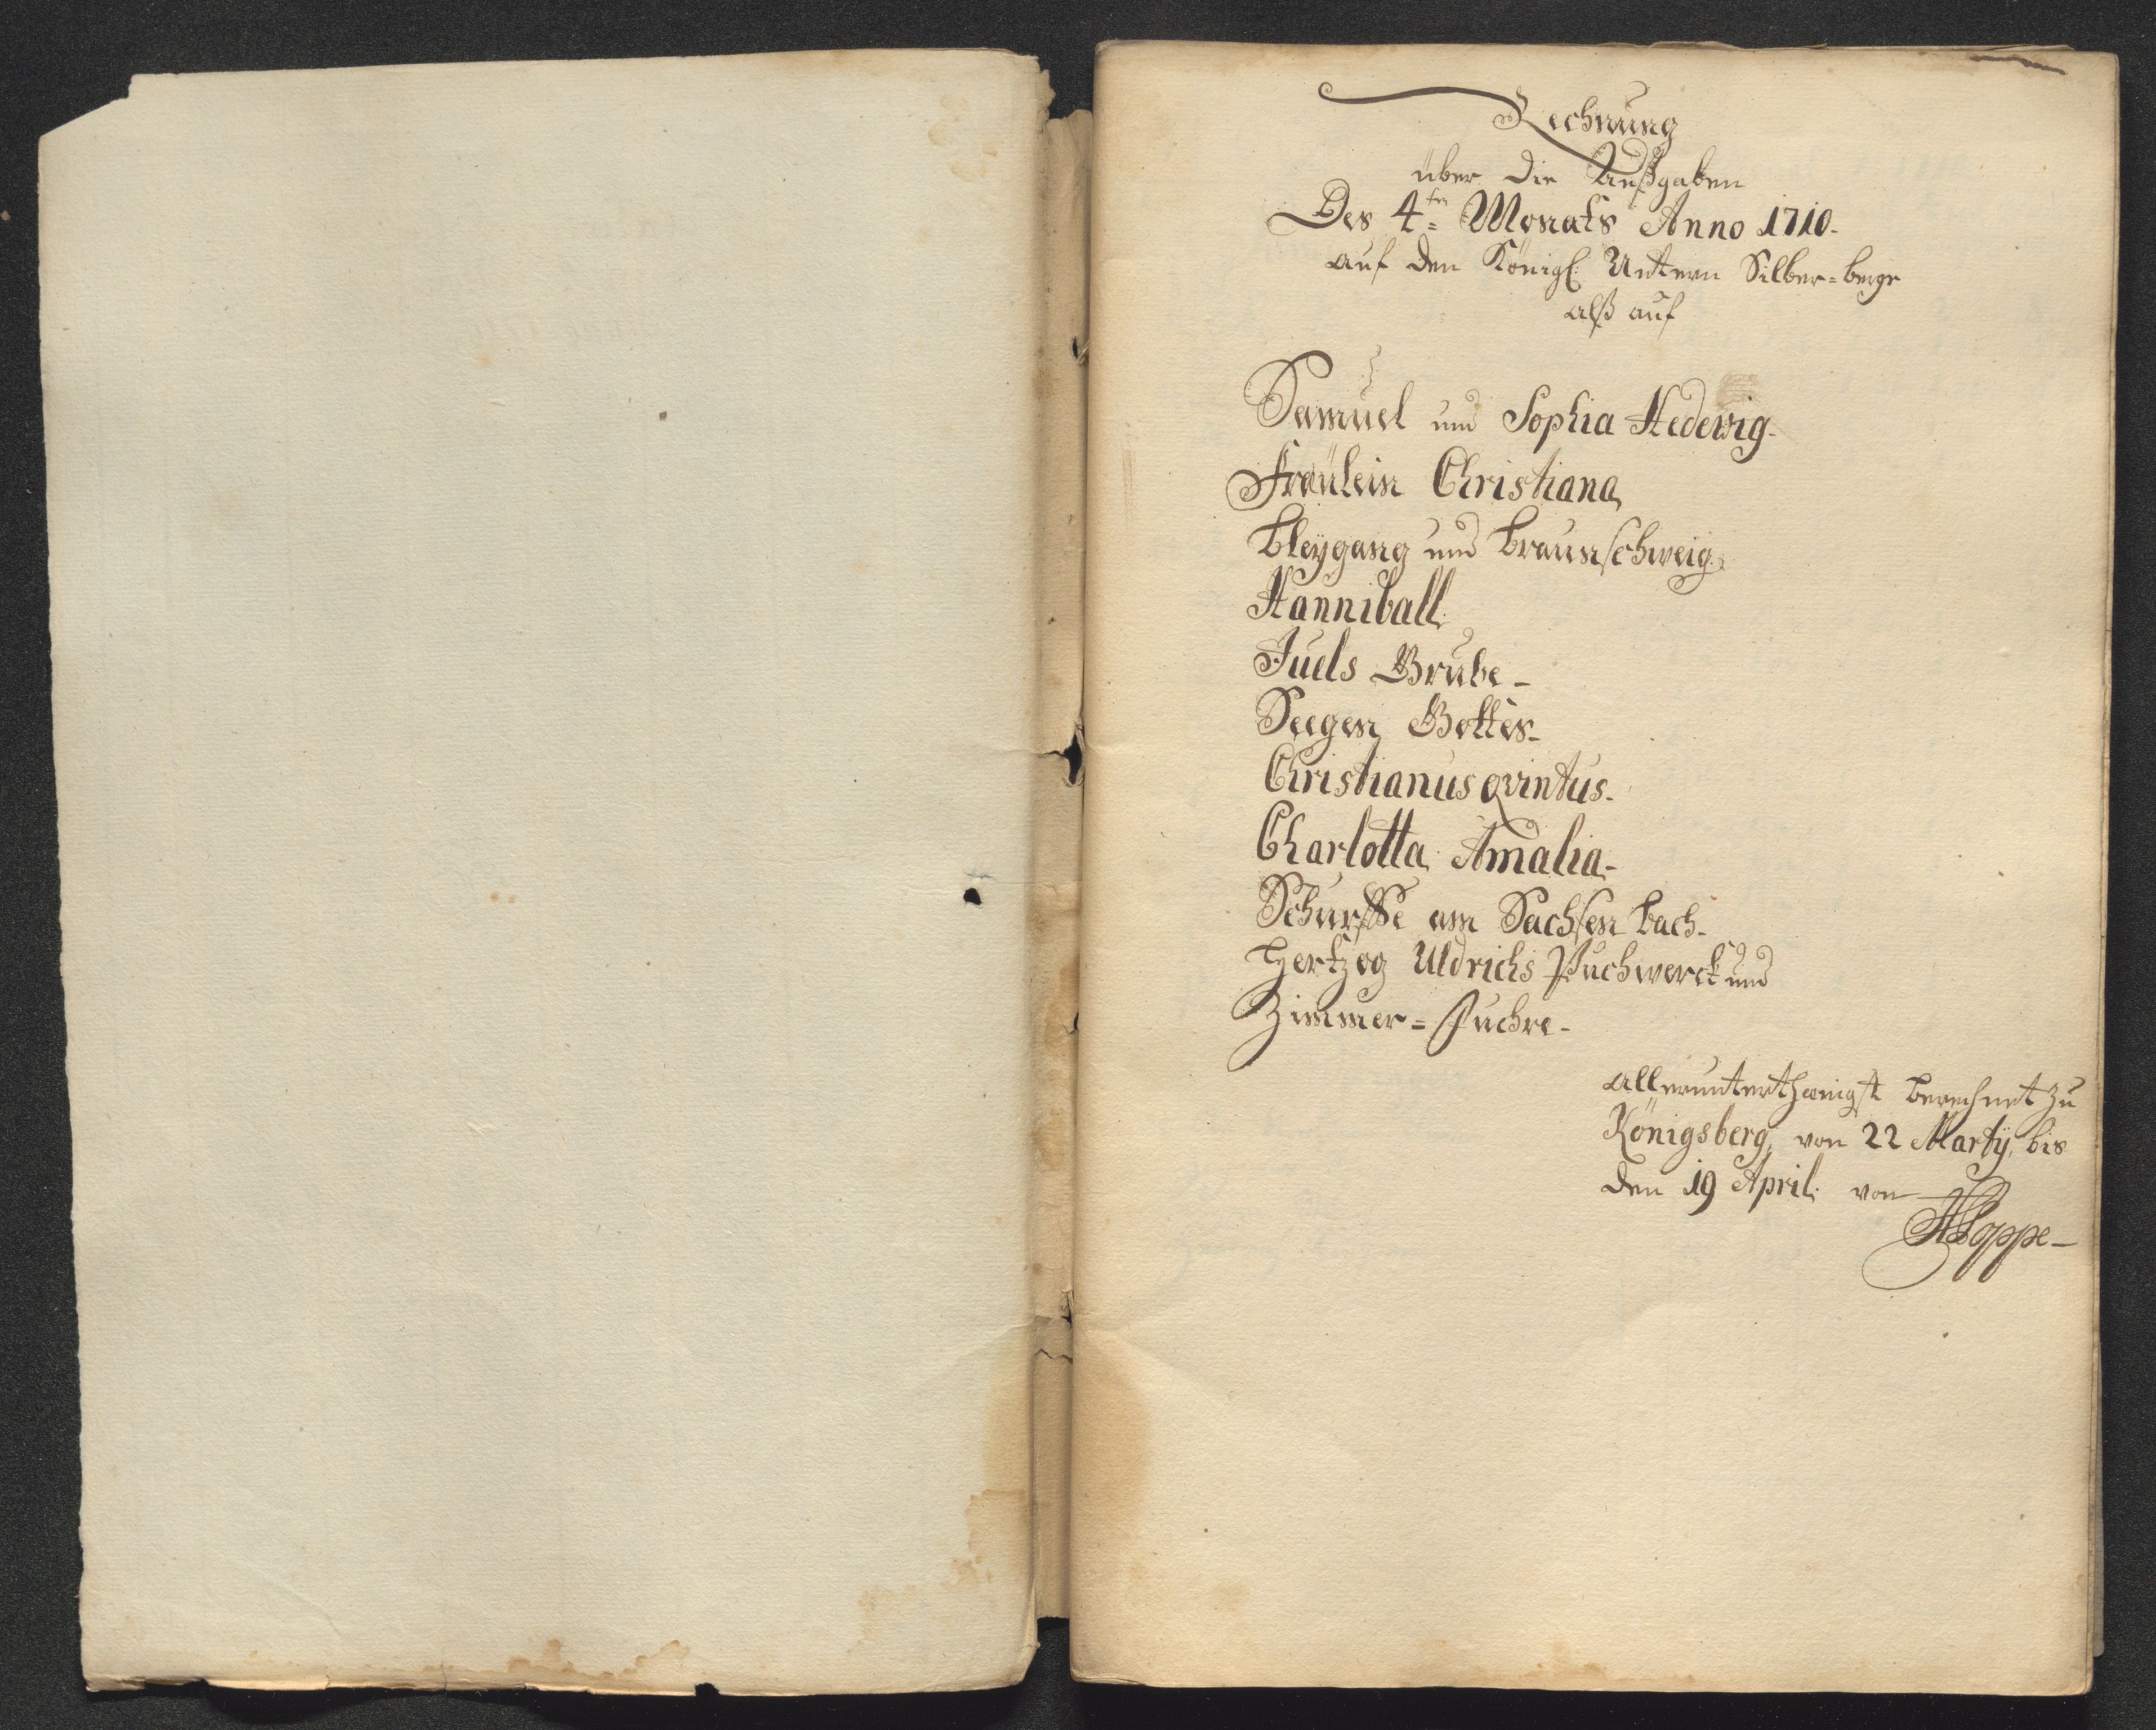 Rechnung
über die Außgaben
Des 4ten Monats Anno 1710.
auf den Königl: Untern Silber=berge
alß auf
Samuel und Sophia Hedewig.
Fräulein Christiana
Bleygang und Braunschweig.
Hanniball
Juels Grube
Seegen Gottes
Christianus Qvintus.
Charlotta Amalia.
Schurffe am Sachsen bach.
Hertzog Uldrichs Puchwerck und
Zimmer=Fuchre.
allerunterthänigst berechnet zu
Königsberg, von 22 Martij, bis
den 19 April: von